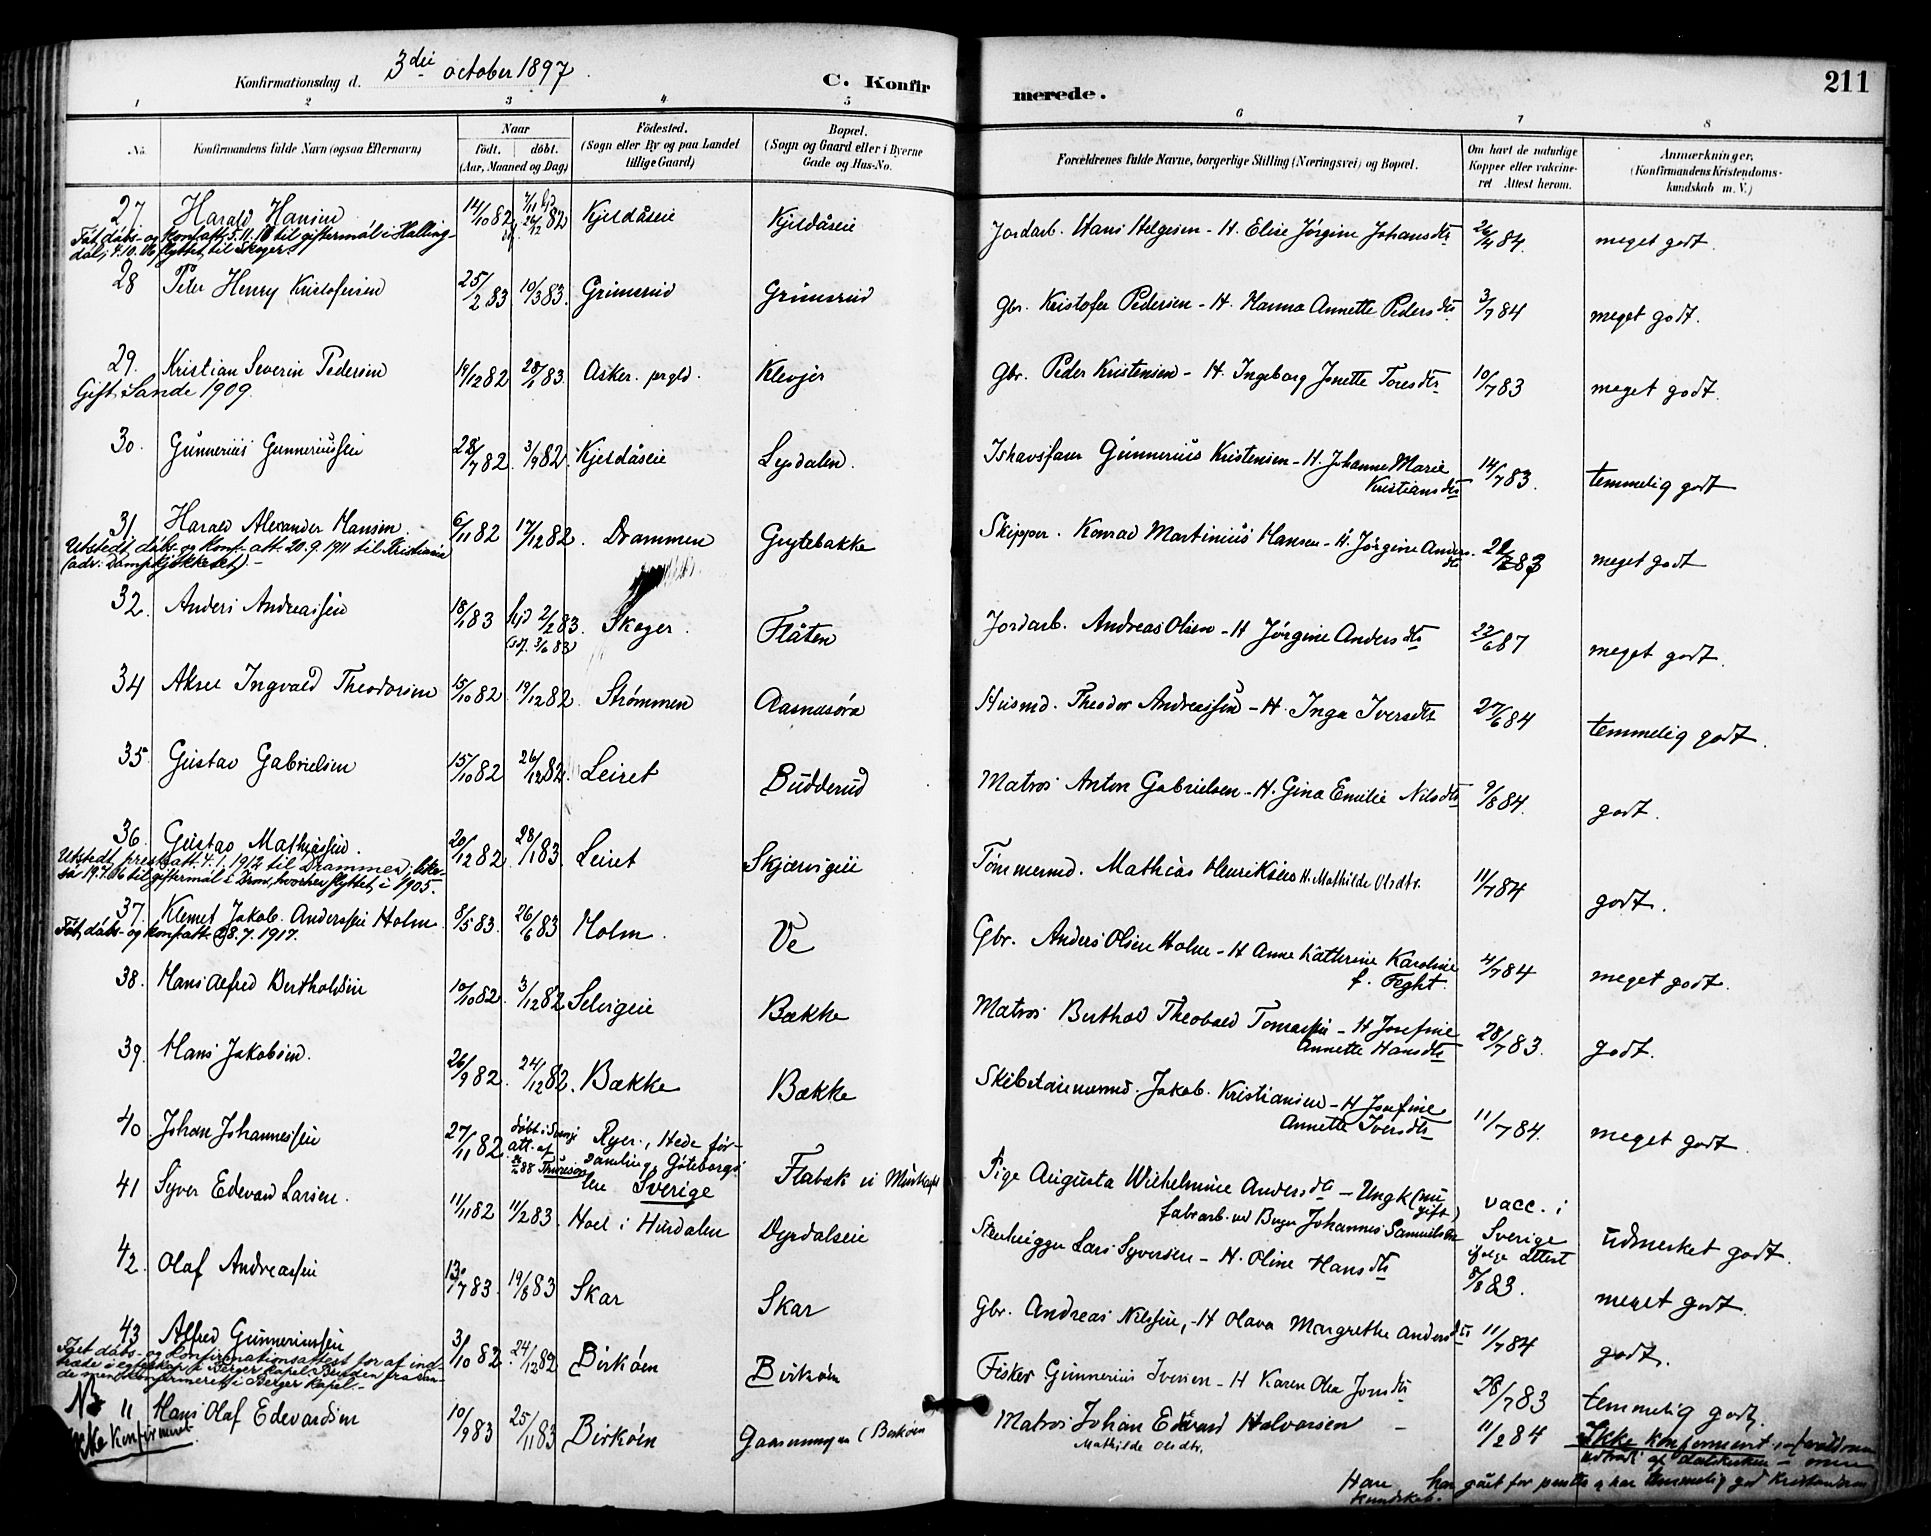 Konfirmationsdag d. 3die october 1897.
C. Konfirmerede.
211
1 2 3 4 5 6 7 8
No.
Konfirmandens fulde Navn (ogsaa Efternavn)
Naar
født. døbt.
(Aar, Maaned og Dag)
Fødested.
(Sogn eller By og paa Landet
tillige Gaard)
Bopæl.
(Sogn og Gaard eller i Byerne
Gade og Hus-No.
Forældrenes fulde Navne, borgerlige Stilling (Næringsvei) og Bopæl.
Om havt de naturlige
Kopper eller vakcine-
ret Attest herom.
Anmærkninger,
(Konfirmandens Kristendoms-
kundskab m. V.)
27. Harald Hansen 14/10 82 26/12 82 Kjeldåseie Kjeldåseie Jordarb. Hans Helgesen - H. Elise Jørgine Johansdtr 26/4 84. meget godt.
Fåt dåbs- og konf.att. 5.11.10 til giftermål i Halling-
dal, 4.10.06 flyttet til Skoger.
28 Peter Henry Kristofersen 25/2 83 10/3 83. Grimsrud Grimsrud Gbr. Kristofer Pedersen - H. Hanna Annette Pedersdtr 3/7 84 meget godt.
29. Kristian Severin Pedersen 14/12 82 28/1 83. Asker. prgld. Klevjer Gbr. Peder Kristensen - H. Ingeborg Jonette Toresdtr 10/7 83 meget godt.
Gift i Sande 1909.
30. Gunnerius Gunneriussen 28/7 82. 3/9 82. Kjeldåseie Lyrdalen. Ishavsfarer Gunnerius Kristensen - H. Johanne Marie
Kristiansdtr 14/7 83. temmelig godt
31. Harald Alexander Hansen 6/11 82 17/12 82. Drammen Grytebakke Skipper. Konrad Martinius Hansen - H. Jørgine Anders-
dtr 83 meget godt
Utstedt dåbs- og konf.-att. 20.9.1911 til Kristiania
(adr: Dampkjøkkenet). -
32. Anders Andreassen 18/1 83 hjd 2/2 83. Skoger. Flåten Jordarb. Andreas Olsen - H Jørgine Andersdtr 22/6 87 meget godt.
34 Aksel Ingvald Theodorsen 15/10 82 19/12 82. Strømmen Aasnesøra Husmd. Theodor Andreassen - H. Inga Iversdtr 27/6 84 temmelig godt.
35 Gustav Gabrielsen 15/10 82 26/12 82. Leiret Budderud Matros Anton Gabrielsen - H. Gina Emilie Nilsdtr 9/8 84. godt.
36. Gustav Mathiassen. 20/12 82 28/1 83. Leiret Skjærvigeie Tømmermd. Mathias Henriksen H. Mathilde Olsdtr. 11/7 84 godt.
Utstedt prestatt. 4.1.1912 til Drammen, like-
så 19.7.06 til giftermål i Dron, hvorhen flyttet i 1905.
37. Klemet Jakob Anderssen Holm 8/5 83. 26/6 83 Holm. Ve Gbr. Anders Olsen Holm - H Anne Kathrine Karoline
f. Feght. 4/7 84 meget godt.
Fåt dåbs- og konf.att. 28.7.1917.
38. Hans Alfred Bertholdsen 10/10 82. 3/12 82 Selvigeie Bække Matros Berthold Theobald Tomassen - H Josefine
Annette Hansdtr 28/7 83. godt.
39. Hans Jakobsen. 26/9 82. 24/12 82. Bække Bække Skibstømmermd. Jakob Kristiansen - H Josefine
Annette Iversdtr 11/7 84. meget godt.
40. Johan Johannessen 27/11 82. døbt i Sverige
att. af Ryer., Hede för-
samling, Göteborgs
len Sverige Flabæk Pige Augusta Wilhelmine Andersdtr - Ungk. (nu
gift)
fabrarb. ved Berger Johannes Samuelsen vacc. i
Sverige
ifølge attest udmerket godt.
41 Syver Edevard Larsen. 11/11 82 11/2 83. Hoel i Hurdalen Dyrdalseie Stenhugger Lars Syversen - H. Oline Hansdtr 8/8 83. meget godt.
42. Olaf Andreassen 13/7 83. 19/8 83 Skar Skar Gbr. Andreas Nilssen, - H Olava Margrethe Andersdtr 11/7 84 godt.
43 Alfred Gunneriussen 31/10 82. 24/12 82 Birkøen Birkøen Fisker Gunnerius Iversen - H Karen Olea Jonsdtr 28/7 83 temmelig godt.
Fået dåbs- og konfirmationsattest for at ind-
træde i egteskap i Berger kapel. Bruden fra San-
de men konfirmeret i Berger kapel. -
NB " Hans Olaf Edevardsen 10/9 83 25/11 83 Birkøen (Birkøen Matros Johan Edvard Halvorsen -
Mathilde Olsdtr. 11/2 84 Ikke konfirmeret,
Ikke konfirmeret.
Han har gået for presten & har temmelig god Kristendoms
kundskab.